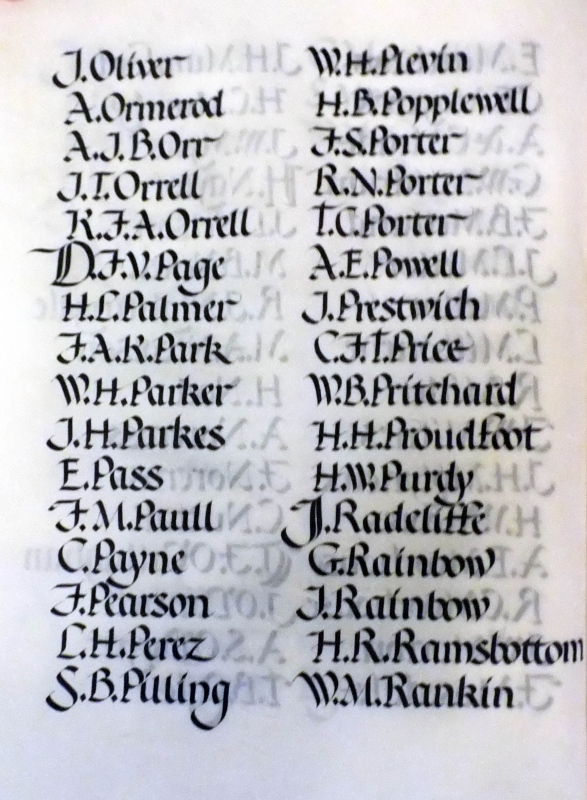 J.Oliver
A.Ormerod
A.J.B.Orr
J.T.Orrell
K.F.A.Orrell
D.F.V.Page
H.L.Palmer
F.A.K.Park
W.H.Parker
J.H.Parkes
E.Pass
F.M.Paull
C.Payne
F.Pearson
L.H.Perez
S.B.Pilling
W.H.Plevin
H.B.Popplewell
F.S.Porter
R.N.Porter
T.C.Porter
A.E.Powell
J.Prestwich
C.F.T.Price
W.B.Pritchard
H.H.Proudfoot
H.W.Purdy
J.Radcliffe
G.Rainbow
J.Rainbow
H.R.Ramsbottom
W.M.Rankin